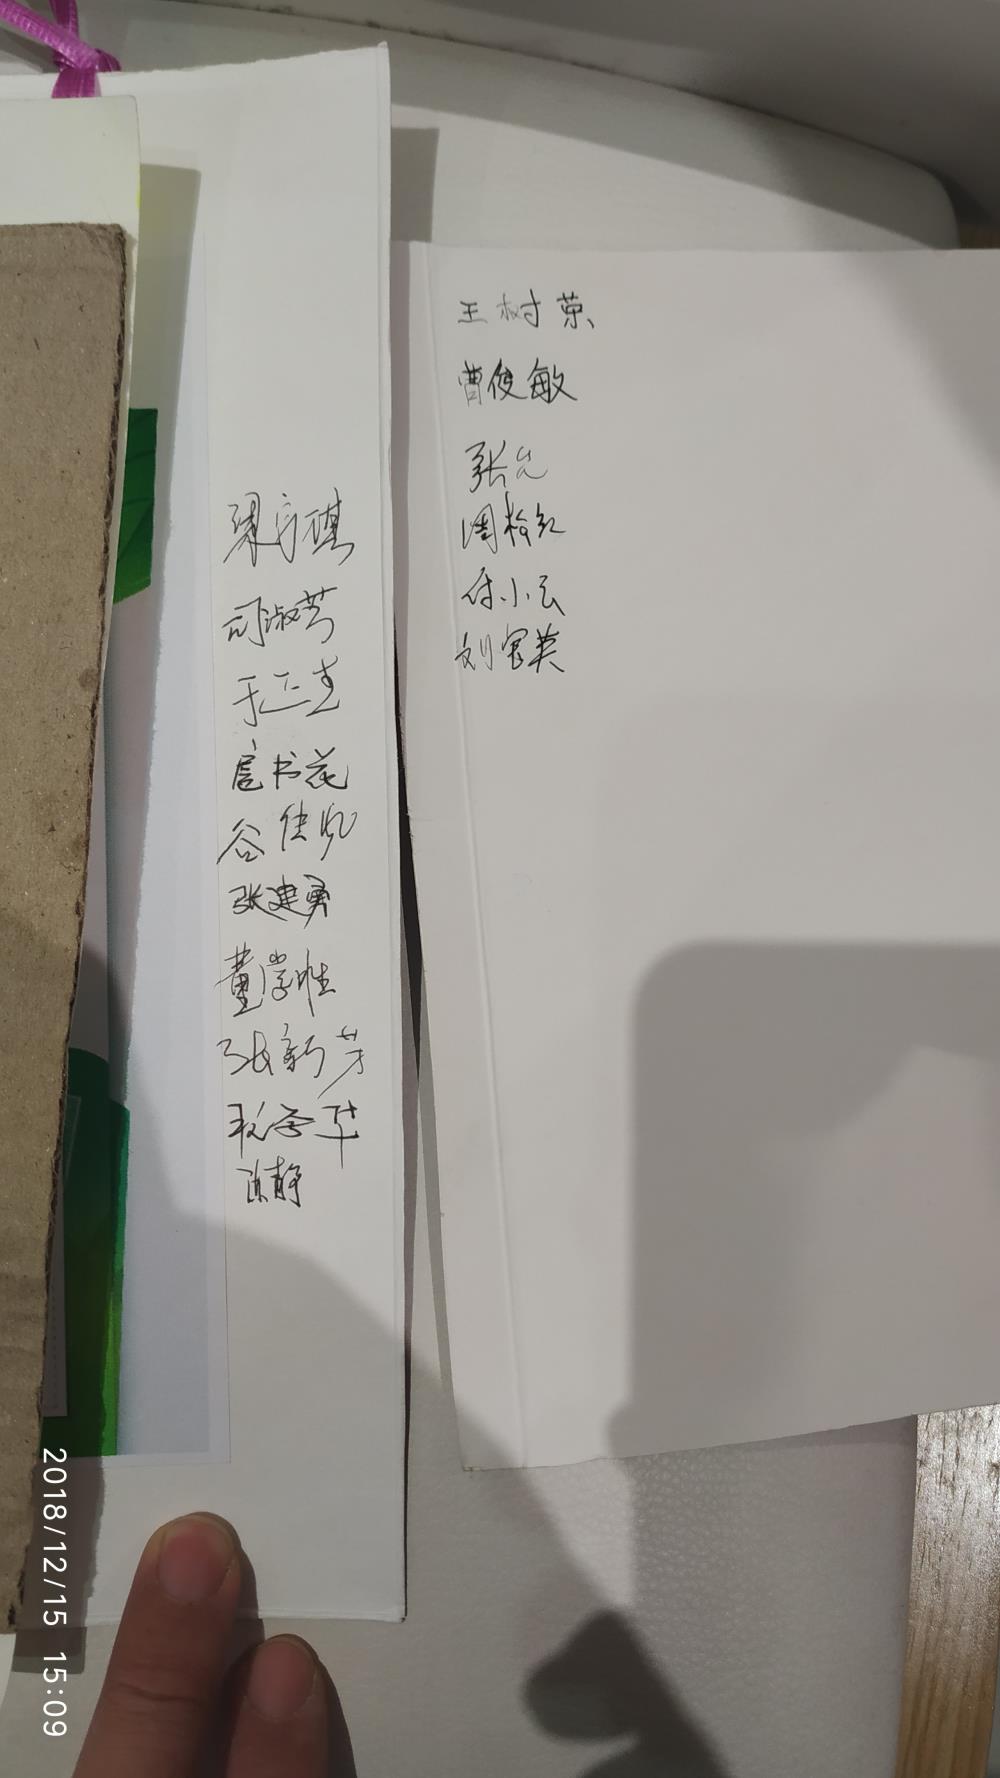 梁守祺
司淑芳
于正生
扈书花
谷佳
张建勇
董学胜
张新芳
华
陈静
王树荣
曹俊敏
张
周栓红
付小云
刘家英
2018/12/15 15:09